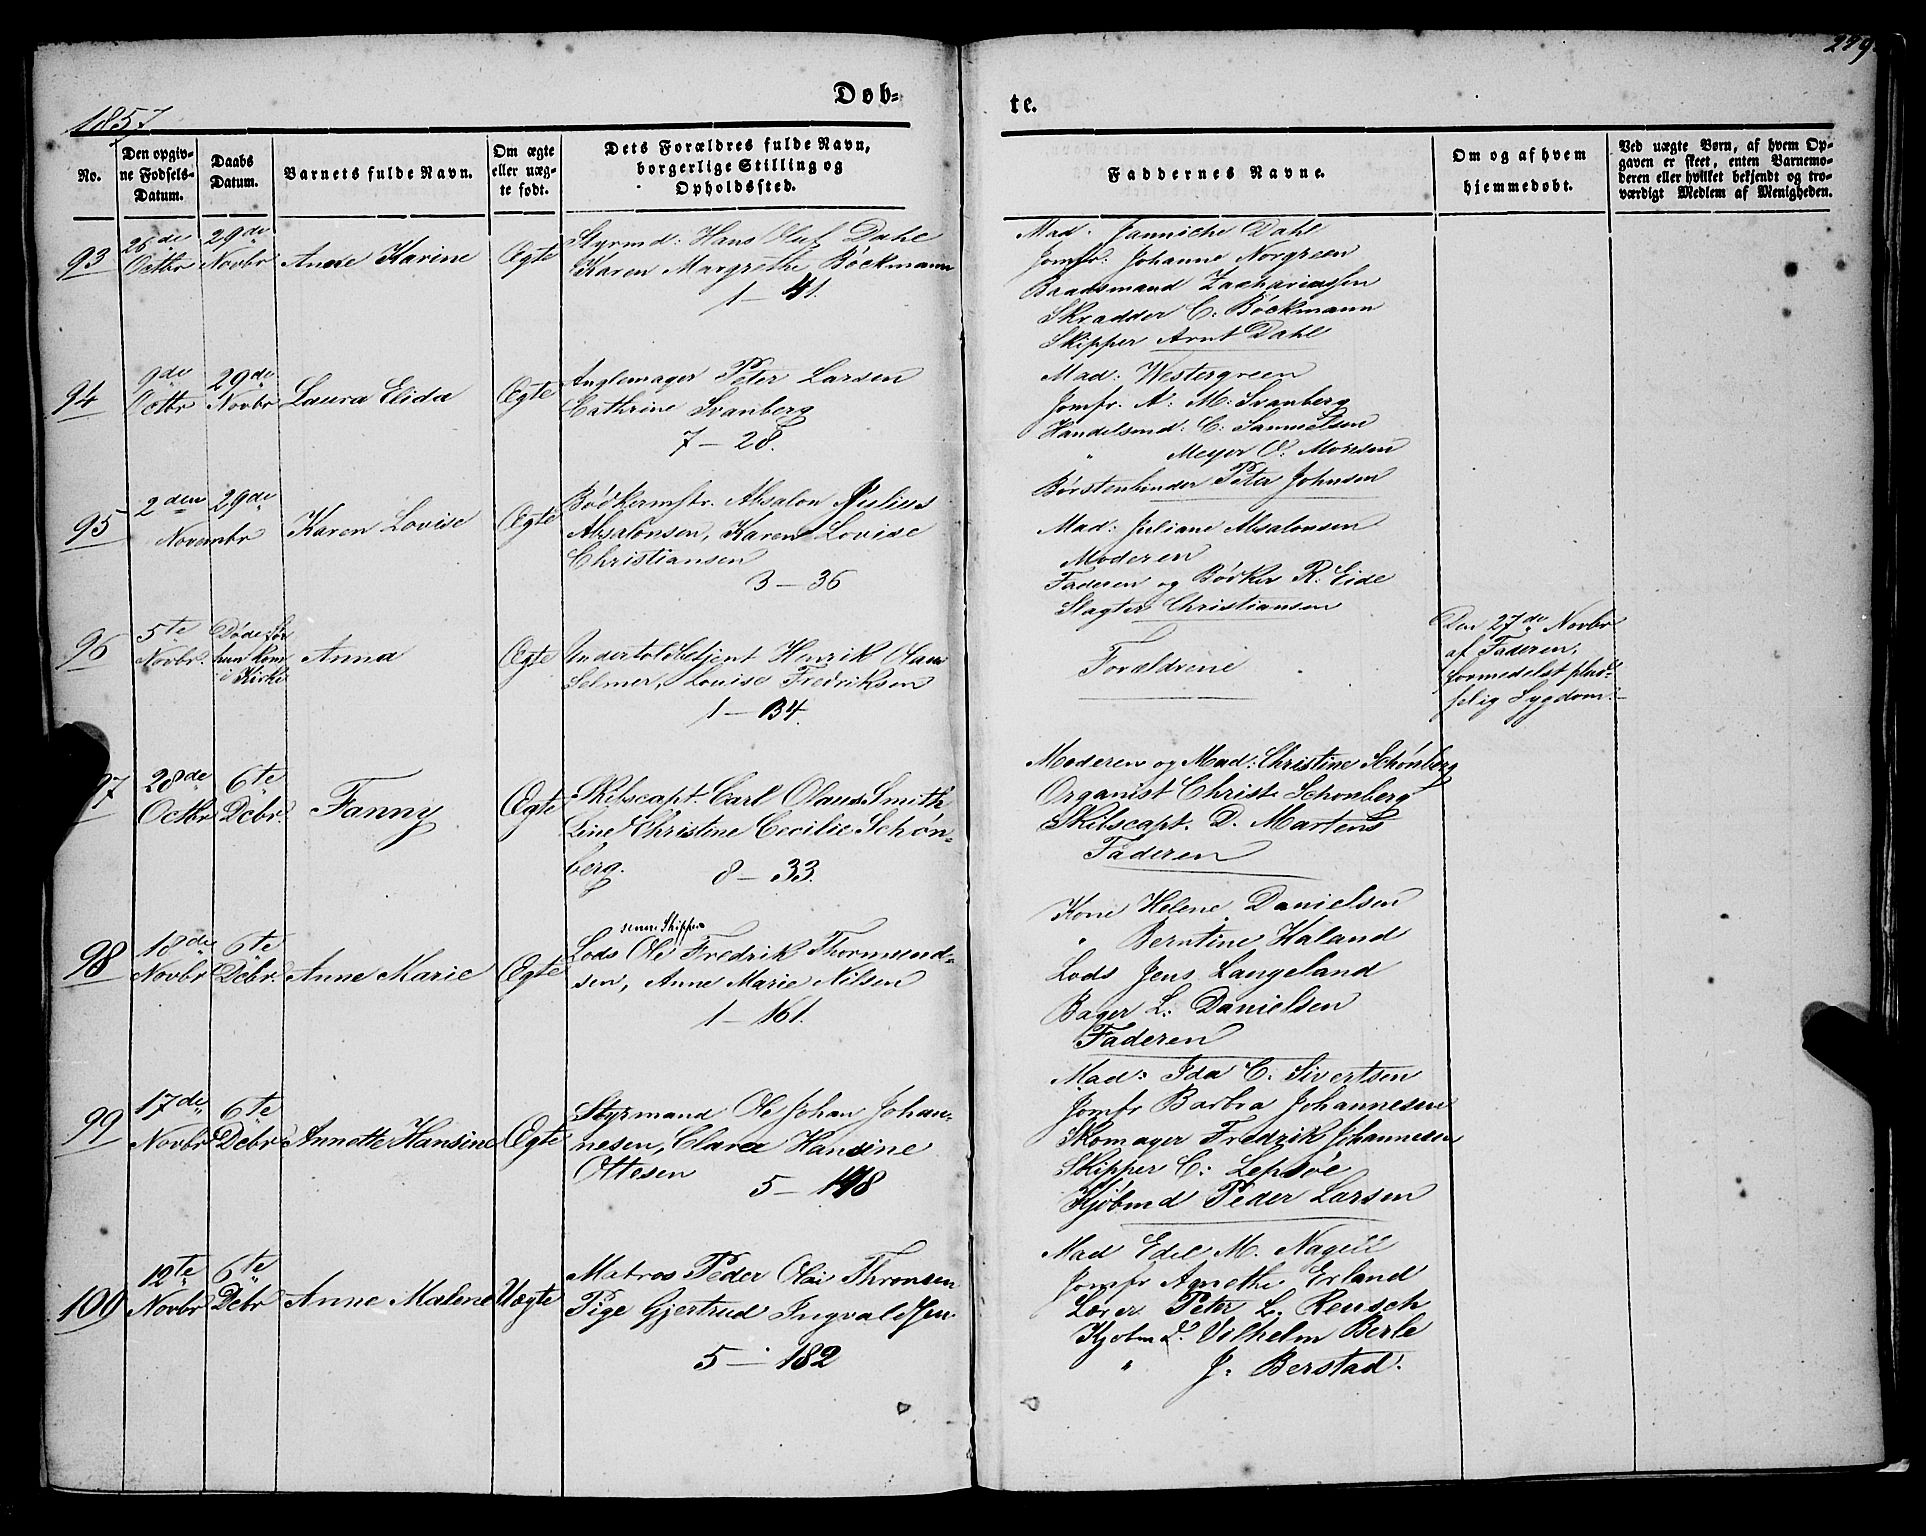 279
1857
Døb-
te.
No.
Den opgiv-
ne Fødsels-
Datum.
Daabs
Datum.
Barnets fulde Navn.
Om ægte
eller uæg-
te født.
Dets Forældres fulde Navn,
borgerlige Stilling og
Opholdssted.
Faddernes Navne.
Om og af hvem
hjemmedøbt.
Ved uægte Børn, af hvem Op-
gaven er skeet, enten Barnemo-
deren eller hvilket bekjendt og tro-
værdigt Medlem af Menigheden.
93
26de
Octbr
29de
Novbr
Anne Karine
Ægte
Styrmd: Hans Oluf Dahl
Karen Margrethe Böckmann
1 – 41.
Mad. Janniche Dahl
Jomfr: Johanne Norgreen
Baadsmand Zachariassen
Skradder C. Böckmann
Skipper Arnt Dahl
94
9de
Octbr
29de
Novbr
Laura Elida
Ægte
Anglemager Peter Larsen
Cathrine Svanberg
7 – 28.
Mad: Westergreen
Jomfr. A: M: Svanberg
Handelsmd: C: Samuelsen
" Meyer O. Monsen
Börstenbinder Peter Johnsen
95
2den
29de
Novembr
Karen Lovise
Ægte
Bödkermstr. Absalon Julius
Absalonsen, Karen Lovise
Christiansen
3 – 36
Mad: Juliane Absalonsen
Moderen
Faderen og Bödker R. Eide
Slagter Christiansen
96
5te
Novbr.
Döde för
hun kom
i Kirke
Anna
Ægte
Undertoldbetjent Henrik Olaus
Selmer, Louise Fredriksen
1 – 134.
Forældrene
Den 27de Novbr
af Faderen,
formedelst plud-
selig Sygdom.
97
28de
Octbr
6te
Debr.
Fanny
Ægte
Skibscapt. Carl Olaus Smith
Line Christine Cecilie Schön-
berg.
8 – 33.
Moderen og Mad: Christine Schönberg
Organist Christ. Schönberg
Skibscapt. D. Martens
Faderen
98
18de
Novbr
6te
Debr.
Anne Marie
Ægte
senere Skipper
Lods Ole Fredrik Thormund-
sen, Anne Marie Nilsen
1 – 161.
Kone Helene Danielsen
" Berntine Haland
Lods Jens Langeland
Bager L: Danielsen
Faderen
99
17de
Novbr
6te
Debr
Annette Hansine
Ægte
Styrmand Ole Johan Johan-
nesen, Clara Hansine
Ottesen
5 – 198
Mad: Ida C. Sivertsen
Jomfr Barbra Johannesen
Skomager Fredrik Johannesen
Skipper C: Lepsöe
Kjöbmd Peder Larsen
100
12te
Novbr
6te
Debr
Anne Malene
Uægte
Matros Peder Olai Thronsen
Pige Gjertrud Ingvaldsen
5 – 182
Mad Edel M. Nagell
Jomfr Anethe Erland
Lærer Peter L. Reusch
Kjöbmd. Vilhelm Berle
" J. Berstad.